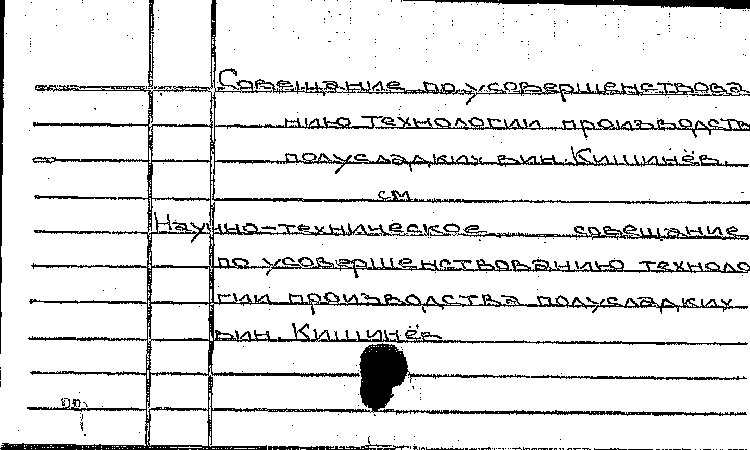 Совещание по усовершенствова
нию технологии производств
полусладких вин. Кишинёв.
см
Научно-техническое совещание
по усовершенствованию техноло
гии производства полусладких
вин. Кишинёв